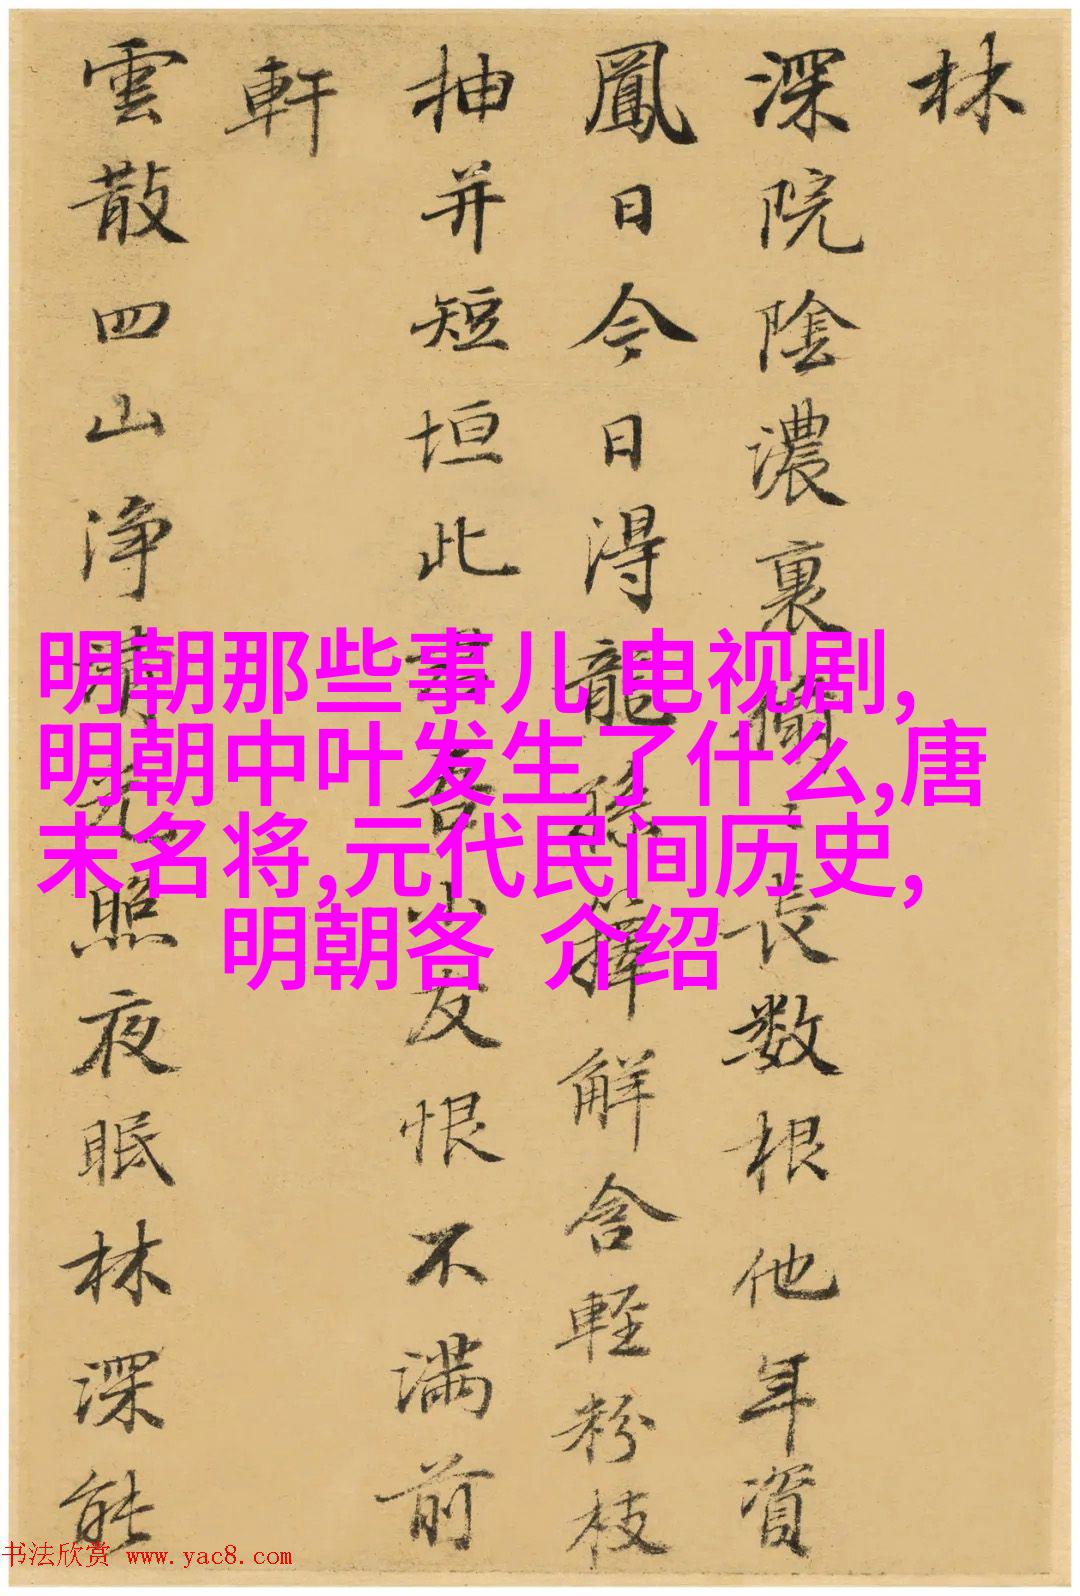 林
深院陰濃裏長數根他年資
鳳日今日得龍孫籜解含輕粉枝
抽并短垣此吾小友恨不滿前
軒
雲散四山淨清光照夜眠林深能
明朝那些事儿电视剧,
明朝中叶发生了什么,唐
末名将,元代民间历史,
明朝各 介绍
书法欣赏 www.yac8.com